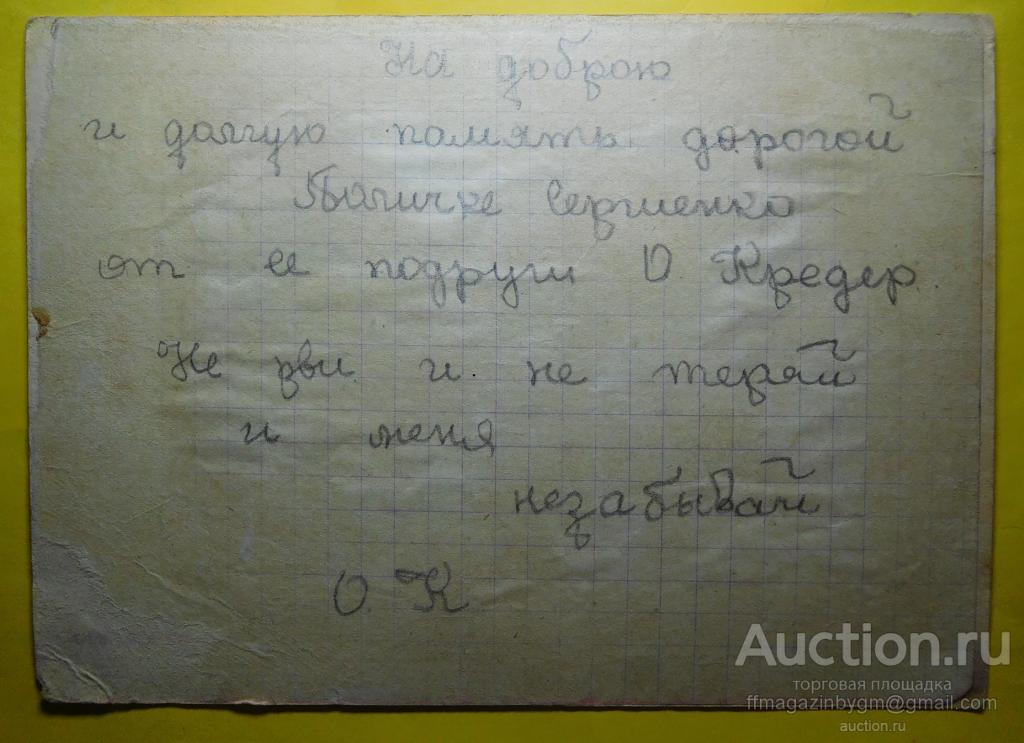 На доброю
и долгую память дорогой
Поличке Сергиенко
от ее подруги О. Кредер.
Не рви и не теряй
и меня
незабывай
О. К
Auction.ru
торговая площадка
ffmagazinbygm@gmail.com
auction.ru